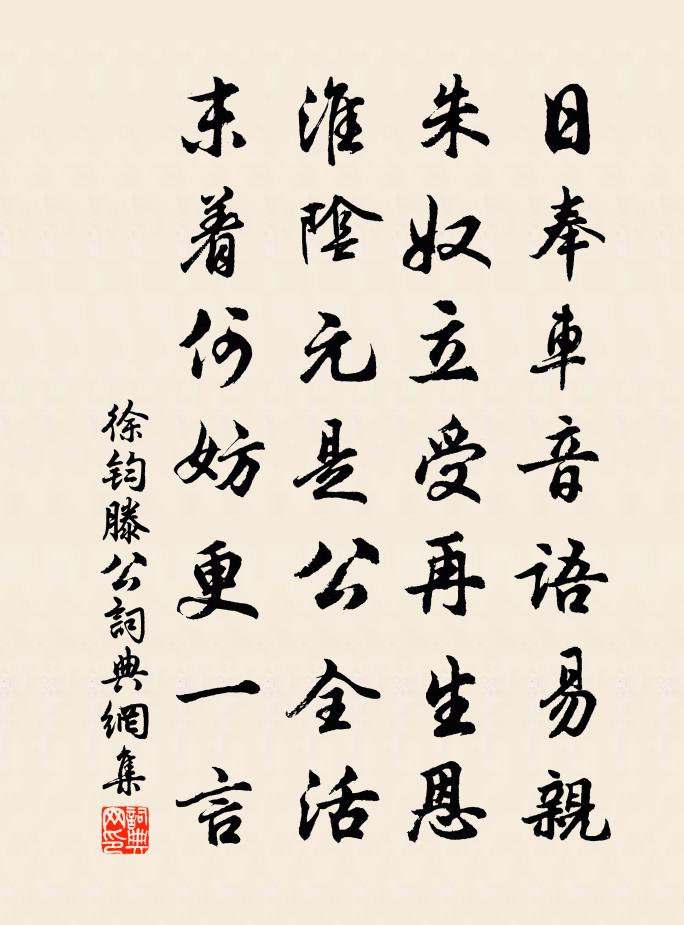 日奉車音語易親
朱奴立受再生恩
淮陰元是公全活
末着何妨更一言
徐鈞滕公詞典網集
詞典网印